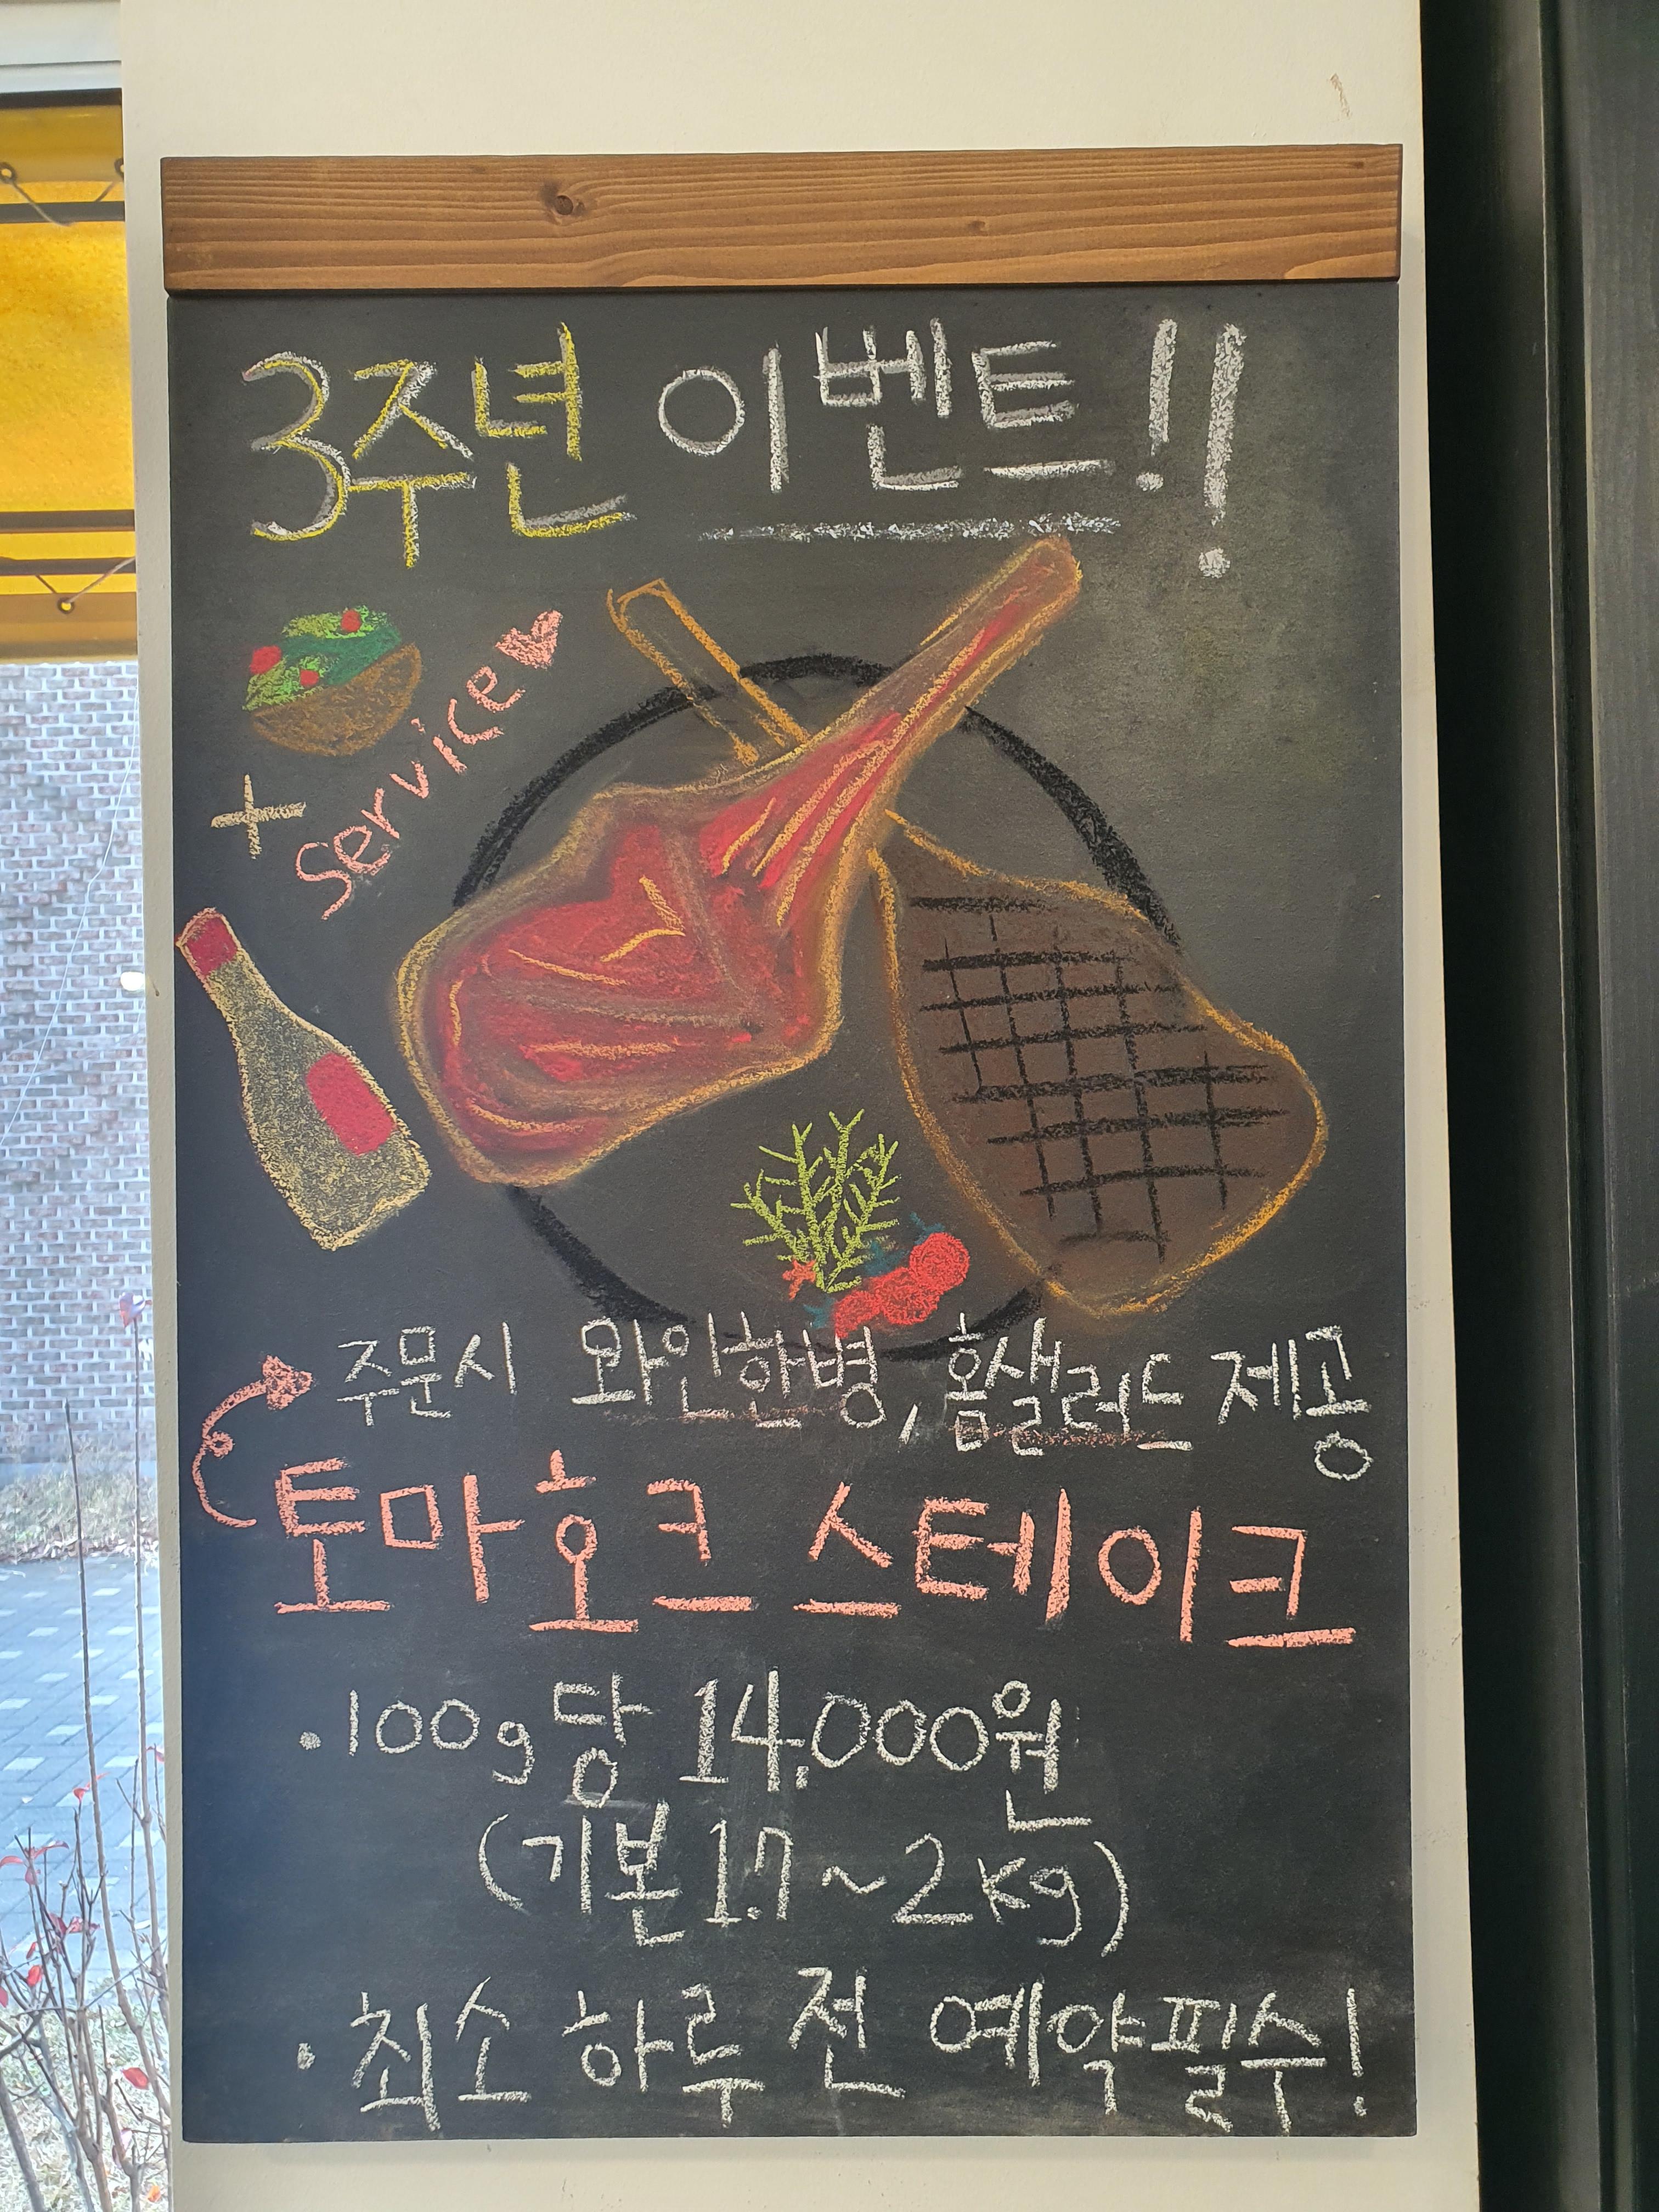 3주년 이벤트!!
Service
+
주문시 와인한병, 홈샐러드 제공
토마호크 스테이크
·100g당 14,000원
(기본 1.7~2kg)
·최소 하루 전 예약필수!